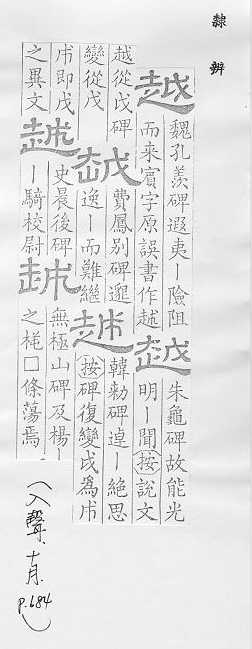 隸辨
越
魏孔羨碑遐夷丨險阻
而来賓字原誤書作越
越
朱龜碑故能光
明丨聞按說文
越從戉碑
變從戊
越
費鳳別碑邈
逸丨而難繼
越
韓勑碑逴丨絕思
按碑復變戉為
即戉
之異文
越
史晨後碑
丨騎校尉
越
無極山碑及楊丨
之□條蕩焉
(入聲、十月. p.684)